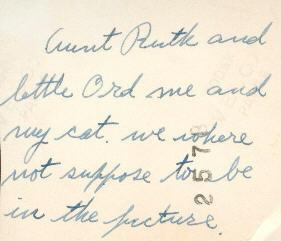 Aunt Ruth and
little Ord me and
my cat. we where
not suppose to be
in the picture.
2578